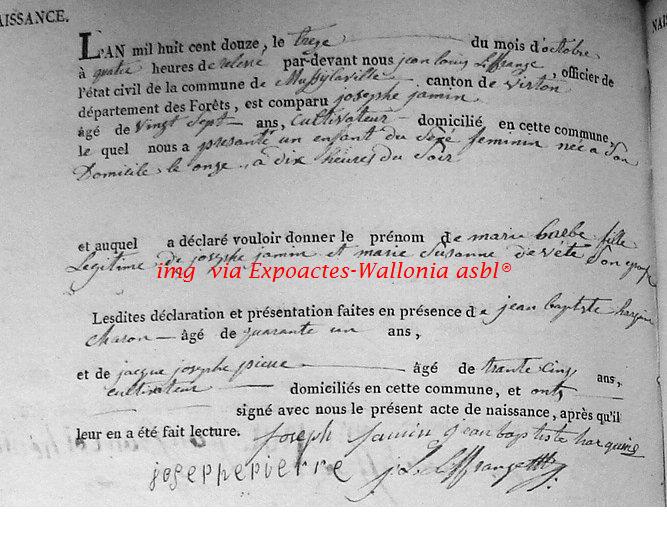 AISSANCE.
NAIS
L'AN mil huit cent douze, le treze du mois d'octobre
à quatre heures de relevée par-devant nous jean louis Leffrange, officier de
l'état civil de la commune de Mussylaville canton de virton
département des Forêts, est comparu josephe jamin
âgé de vingt sept ans, Cultivateur domicilié en cette commune,
le quel nous a presanté un enfant du Sexe feminin née a Son
Domicile le onze a dix heures du Soir
et auquel a déclaré vouloir donner le prénom de marie barbe fille
Legitime de josephe jamin et marie Susanne devéte Son epouse
img via Expoactes-Wallonia asbl®
Lesdites déclaration et présentation faites en présence de jean baptiste
charon âgé de quarante un ans,
et de jacque josephe pierre âgé de trante cinq ans,
cultivateur domiciliés en cette commune, et ont
signé avec nous le présent acte de naissance, après qu'il
leur en a été fait lecture. joseph Jamin jean baptiste
josephe pierre j L Leffrange